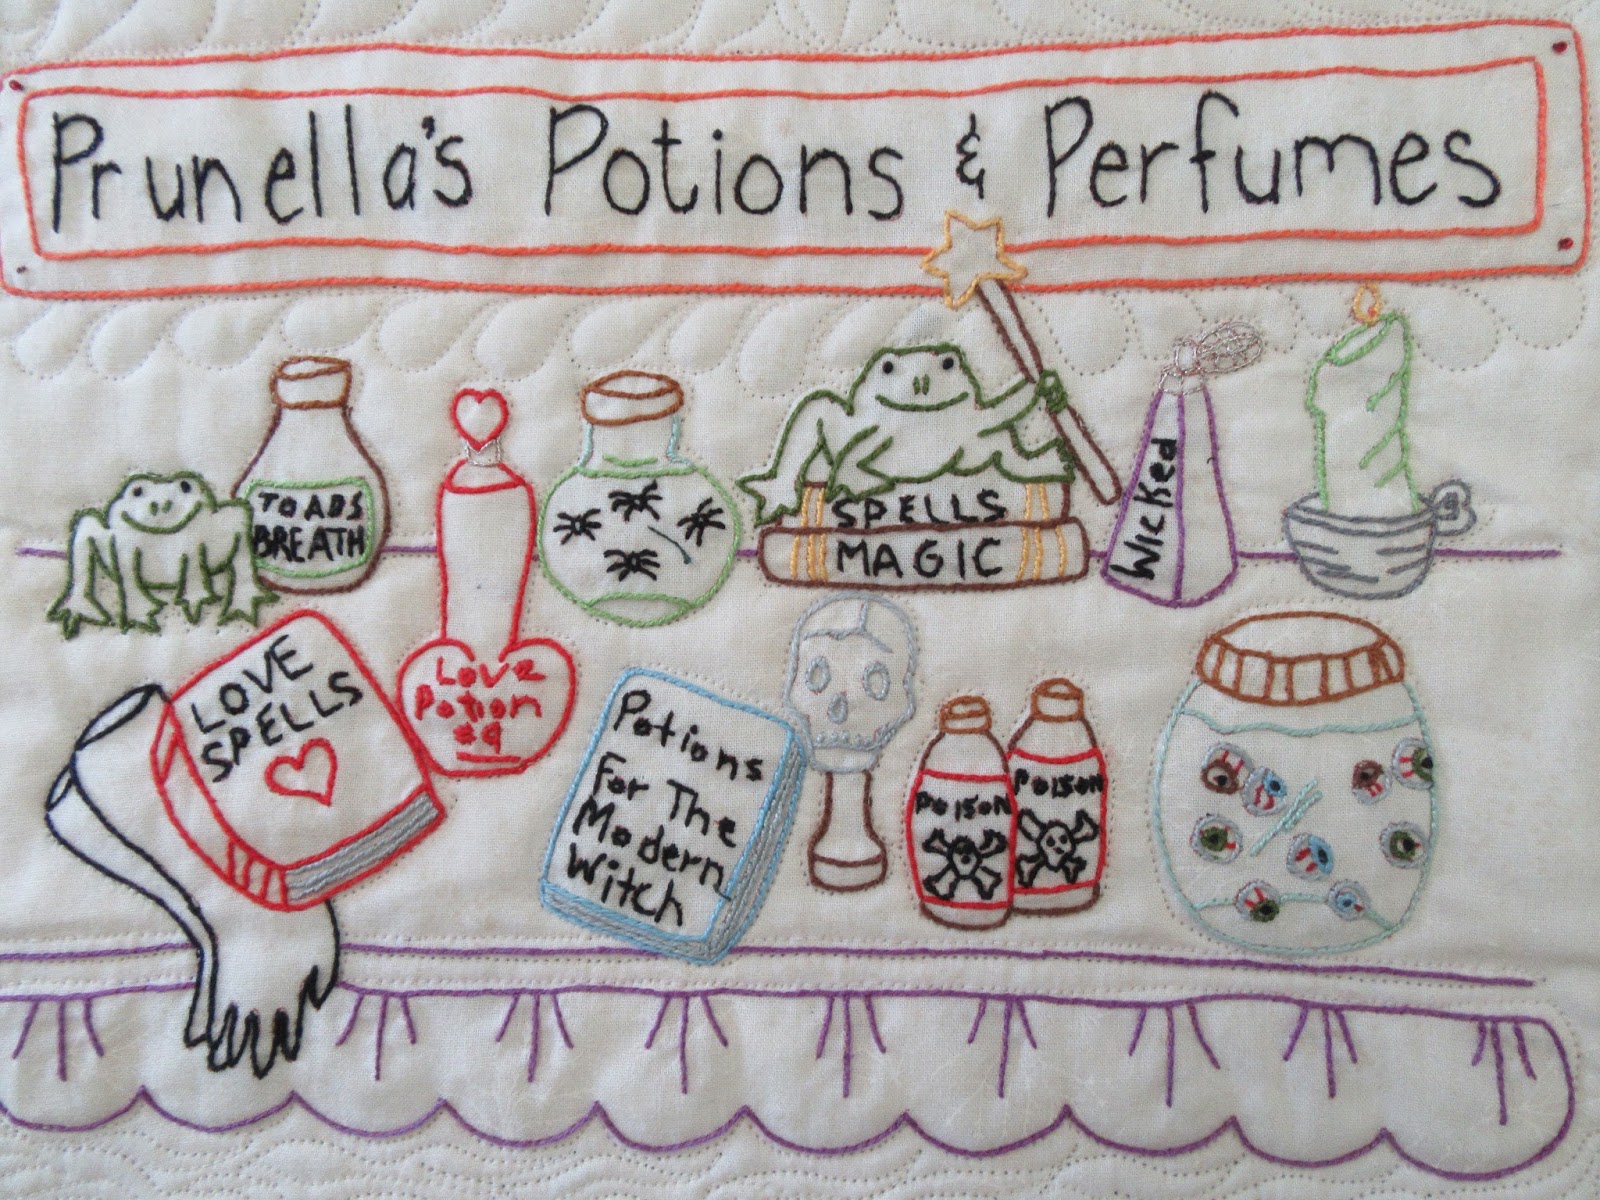 Prunella's Potions & Perfumes
TOADS
BREATH
SPELLS
MAGIC
Wicked
LOVE
SPELLS
Love
Potion
#9
Potions
For The
Modern
Witch
POISON
POISON